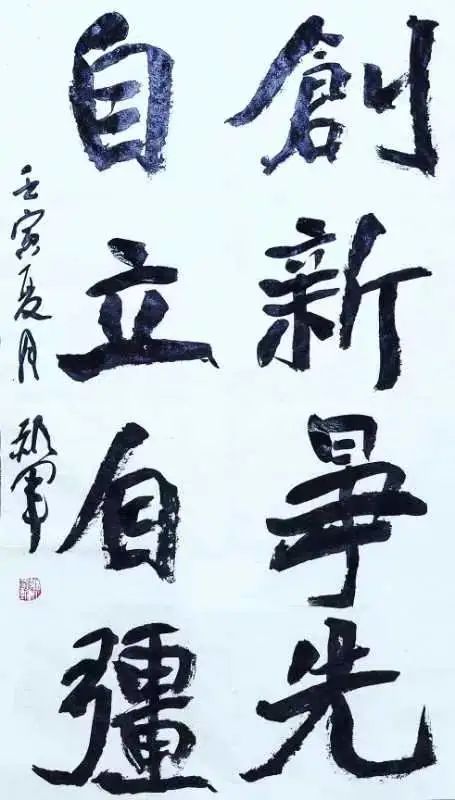 創新爭先
自立自彊
壬寅夏月